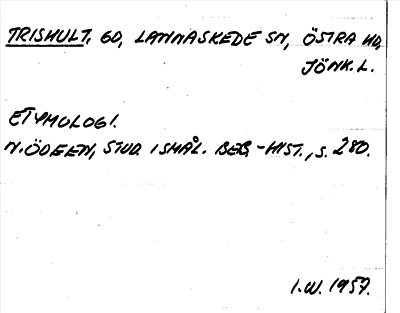 TRISHULT. GD, LANNASKEDE SN, ÖSTRA HD,
JÖNK. L.
ETYMOLOGI.
N. ÖDEEN, STUD. I SMÅL. BEB.-HIST., S. 280.
I.W. 1957.